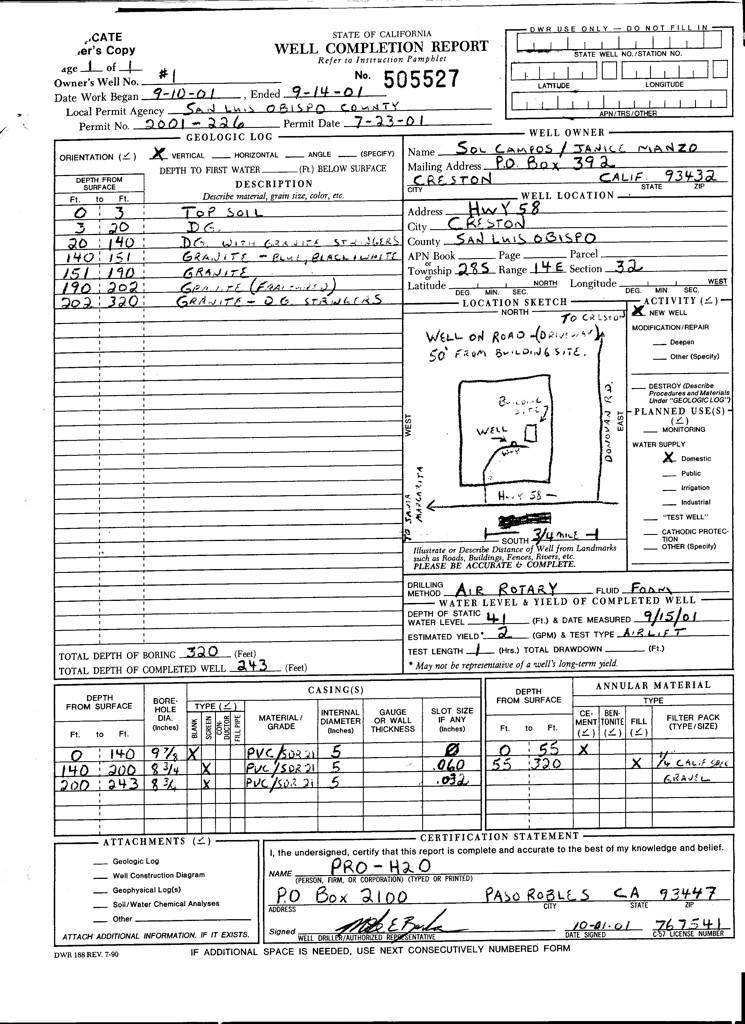 .CATE
.er's Copy
age 1 of 1
Owner's Well No. #1
Date Work Began 9-10-01, Ended 9-14-01
Local Permit Agency SAN LUIS OBISPO COUNTY
Permit No. 2001-226 Permit Date 7-23-01
STATE OF CALIFORNIA
WELL COMPLETION REPORT
Refer to Instruction Pamphlet
No. 505527
DWR USE ONLY — DO NOT FILL IN
STATE WELL NO./STATION NO.
LATITUDE LONGITUDE
APN/TRS/OTHER
GEOLOGIC LOG
ORIENTATION (✓) X VERTICAL HORIZONTAL ANGLE (SPECIFY)
DEPTH TO FIRST WATER (Ft.) BELOW SURFACE
DEPTH FROM SURFACE
Ft. to Ft.
DESCRIPTION
Describe material, grain size, color, etc.
0 3 TOP SOIL
3 20 D.G.
20 140 D.G. WITH GRANITE STRINGERS
140 151 GRANITE - BLUE, BLACK & WHITE
151 190 GRANITE
190 202 GRANITE (FRACTURED)
202 320 GRANITE - D.G. STRINGERS
TOTAL DEPTH OF BORING 320 (Feet)
TOTAL DEPTH OF COMPLETED WELL 243 (Feet)
WELL OWNER
Name SOL CAMPOS / JANICE MANZO
Mailing Address P.O. BOX 392
CRESTON CALIF. 93432
CITY STATE ZIP
WELL LOCATION
Address HWY 58
City CRESTON
County SAN LUIS OBISPO
APN Book Page Parcel
or
Township 28S Range 14E Section 32
or
Latitude NORTH Longitude WEST
DEG. MIN. SEC. DEG. MIN. SEC.
LOCATION SKETCH
NORTH
TO CRESTON
WELL ON ROAD -(DRIVEWAY)
50' FROM BUILDING SITE.
BUILDING
SITE
WELL
HWY 58
DONOVAN RD.
WEST
EAST
TO SANTA
MARGARITA
SOUTH
3/4 MILE
Illustrate or Describe Distance of Well from Landmarks
such as Roads, Buildings, Fences, Rivers, etc.
PLEASE BE ACCURATE & COMPLETE.
ACTIVITY (✓)
X NEW WELL
MODIFICATION/REPAIR
Deepen
Other (Specify)
DESTROY (Describe
Procedures and Materials
Under "GEOLOGIC LOG")
PLANNED USE(S)
(✓)
MONITORING
WATER SUPPLY
X Domestic
Public
Irrigation
Industrial
"TEST WELL"
CATHODIC PROTEC-
TION
OTHER (Specify)
DRILLING
METHOD AIR ROTARY FLUID FOAM
WATER LEVEL & YIELD OF COMPLETED WELL
DEPTH OF STATIC
WATER LEVEL 41 (Ft.) & DATE MEASURED 9/15/01
ESTIMATED YIELD* 2 (GPM) & TEST TYPE AIRLIFT
TEST LENGTH 1 (Hrs.) TOTAL DRAWDOWN (Ft.)
* May not be representative of a well's long-term yield.
DEPTH
FROM SURFACE
Ft. to Ft.
BORE-
HOLE
DIA.
(Inches)
CASING(S)
TYPE (✓)
BLANK
SCREEN
CON-
DUCTOR
FILL PIPE
MATERIAL/
GRADE
INTERNAL
DIAMETER
(Inches)
GAUGE
OR WALL
THICKNESS
SLOT SIZE
IF ANY
(Inches)
0 140 9 7/8 X PVC/SDR 21 5 0
140 200 8 3/4 X PVC/SDR 21 5 .060
200 243 8 3/4 X PVC/SDR 21 5 .032
DEPTH
FROM SURFACE
Ft. to Ft.
ANNULAR MATERIAL
TYPE
CE-
MENT
(✓)
BEN-
TONITE
(✓)
FILL
(✓)
FILTER PACK
(TYPE/SIZE)
0 55 X
55 320 X 1/4 CALIF
GRAVEL
ATTACHMENTS (✓)
Geologic Log
Well Construction Diagram
Geophysical Log(s)
Soil/Water Chemical Analyses
Other
ATTACH ADDITIONAL INFORMATION. IF IT EXISTS.
CERTIFICATION STATEMENT
I, the undersigned, certify that this report is complete and accurate to the best of my knowledge and belief.
NAME PRO-H2O
(PERSON, FIRM, OR CORPORATION) (TYPED OR PRINTED)
P.O Box 2100 PASO ROBLES CA 93447
ADDRESS CITY STATE ZIP
Signed 10-01-01 767541
WELL DRILLER/AUTHORIZED REPRESENTATIVE DATE SIGNED C-57 LICENSE NUMBER
DWR 188 REV. 7-90 IF ADDITIONAL SPACE IS NEEDED, USE NEXT CONSECUTIVELY NUMBERED FORM